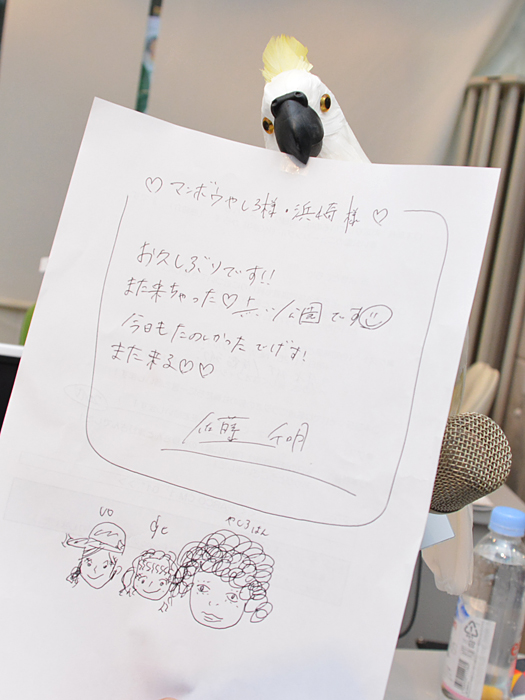 ♡ マンボウやしろ様・浜崎様 ♡
お久しぶりです!!
また来ちゃった♡ 公園です☺
今日もたのしかったでげす!
また来る♡♡
佐藤
vo
gc
やしろはん